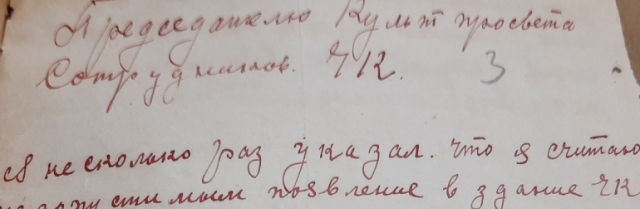 Председателю Культ просвета
Сотрудников. ЧК. 3
Я несколько раз указал. что я считаю
недопустимым появление в здание ЧК